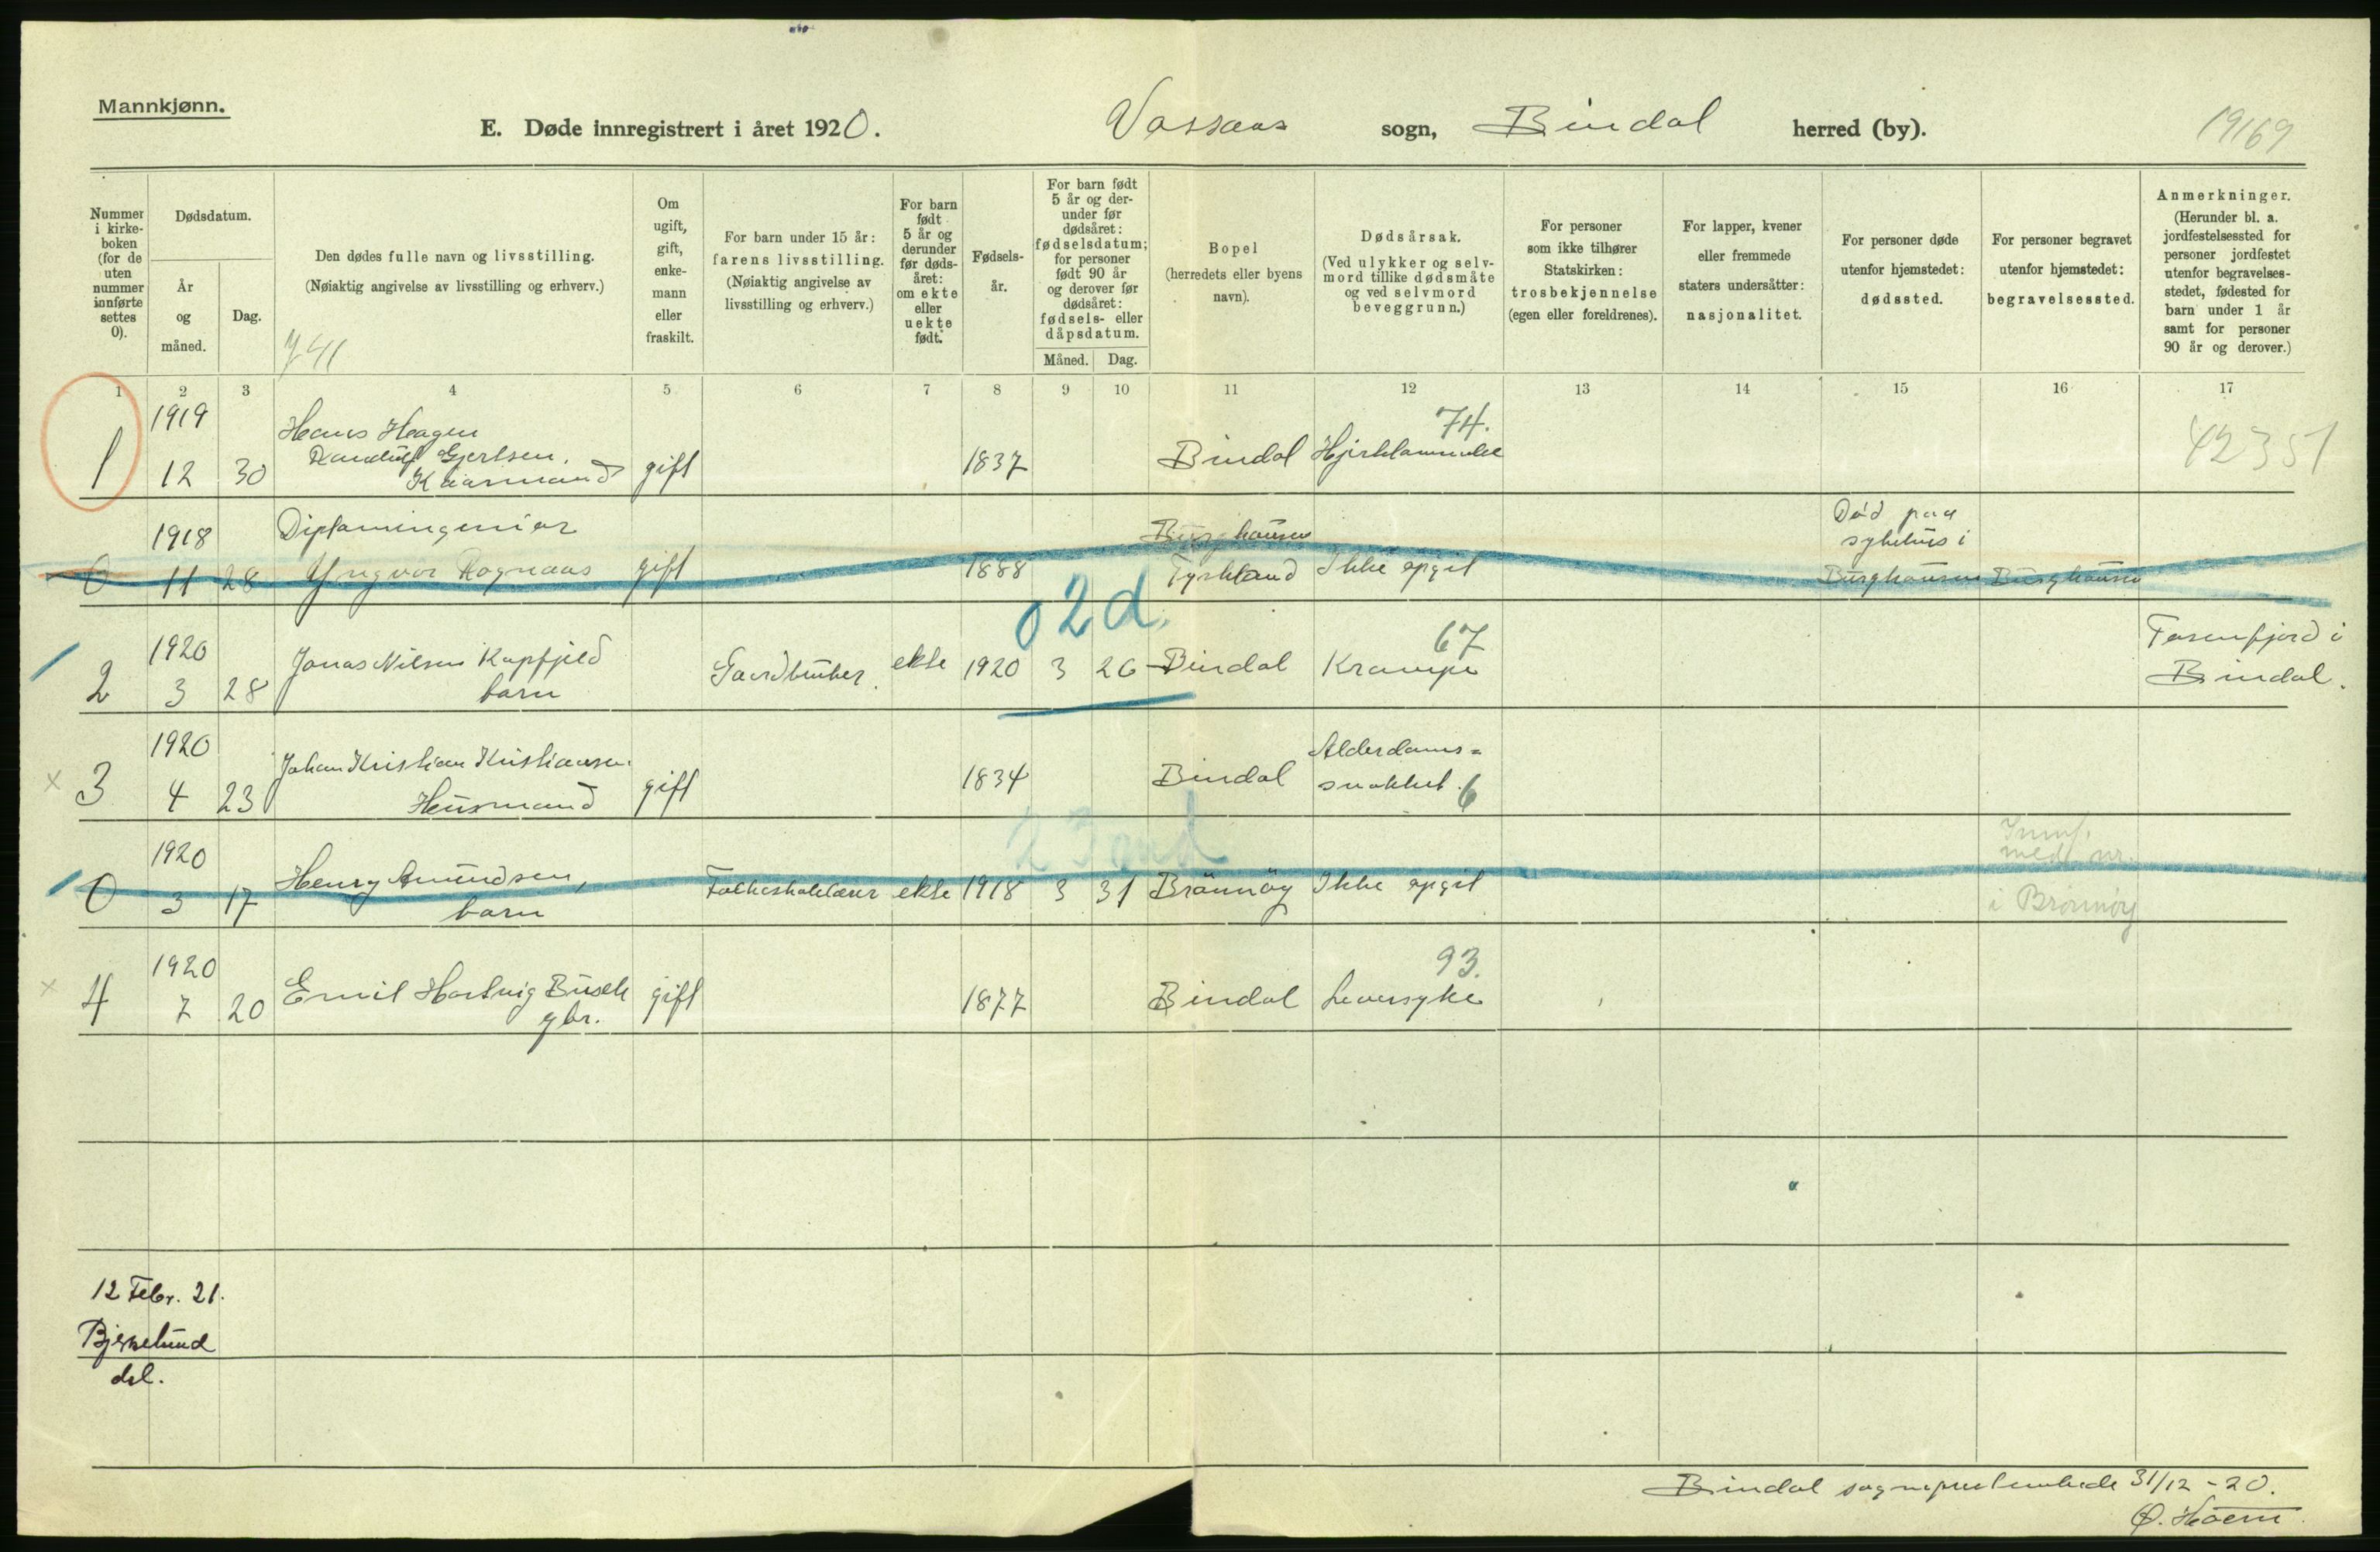 Mannkjønn.
E. Døde innregistrert i året 1920. Vassaas sogn, Bindal herred (by).
19169
Nummer i kirke-boken (for de uten nummer innførte settes 0).
Dødsdatum.
År og måned.
Dag.
Den dødes fulle navn og livsstilling.
(Nøiaktig angivelse av livsstilling og erhverv.)
Om ugift, gift, enke-mann eller fraskilt.
For barn under 15 år: farens livsstilling.
(Nøiaktig angivelse av livsstilling og erhverv.)
For barn født 5 år og derunder før døds-året: om ekte eller uekte født.
Fødsels-år.
For barn født 5 år og der-under før dødsåret: fødselsdatum; for personer født 90 år og derover før dødsåret: fødsels- eller dåpsdatum.
Måned. Dag.
Bopel
(herredets eller byens navn).
Dødsårsak.
(Ved ulykker og selv-mord tillike dødsmåte og ved selvmord beveggrunn.)
For personer som ikke tilhører Statskirken: trosbekjennelse (egen eller foreldrenes).
For lapper, kvener eller fremmede staters undersåtter: nasjonalitet.
For personer døde utenfor hjemstedet: dødssted.
For personer begravet utenfor hjemstedet: begravelsessted.
Anmerkninger.
(Herunder bl. a. jordfestelsessted for personer jordfestet utenfor begravelses-stedet, fødested for barn under 1 år samt for personer 90 år og derover.)
1 2 3 4 5 6 7 8 9 10 11 12 13 14 15 16 17
1919 Hans Hagen 74.
Gjertsen,
1 12 30 Kaarmand gift 1837 Bindal 42351
1918 Diplomingeniør Burghausen Død paa sykehus i
0 11 28 Yngvar Ragnaas gift 1888 Tyskland Ikke opgit Burghausen Burghausen
02d.
1920 Jonas Nilsen Kapfjeld 67 Tosenfjord i
2 3 28 barn Gaardbruker ekte 1920 3 26 Bindal Krampe Bindal.
1920 Johan Kristian Kristiansen Alderdoms=
x 3 4 23 Husmand gift 1834 Bindal svakhet. 6
1920 Henry Amundsen, Innf. med nr.
0 3 17 barn Folkeskolelærer ekte 1918 3 31 Brönnöy Ikke opgit i Brönnöy
1920 93.
x 4 7 20 Emil Hartvig Busch gift 1877 Bindal Leversyke
gbr.
12 Febr. 21.
Bjerkelund
del.
Bindal sogneprestembede 31/12 - 20.
O. Hoem